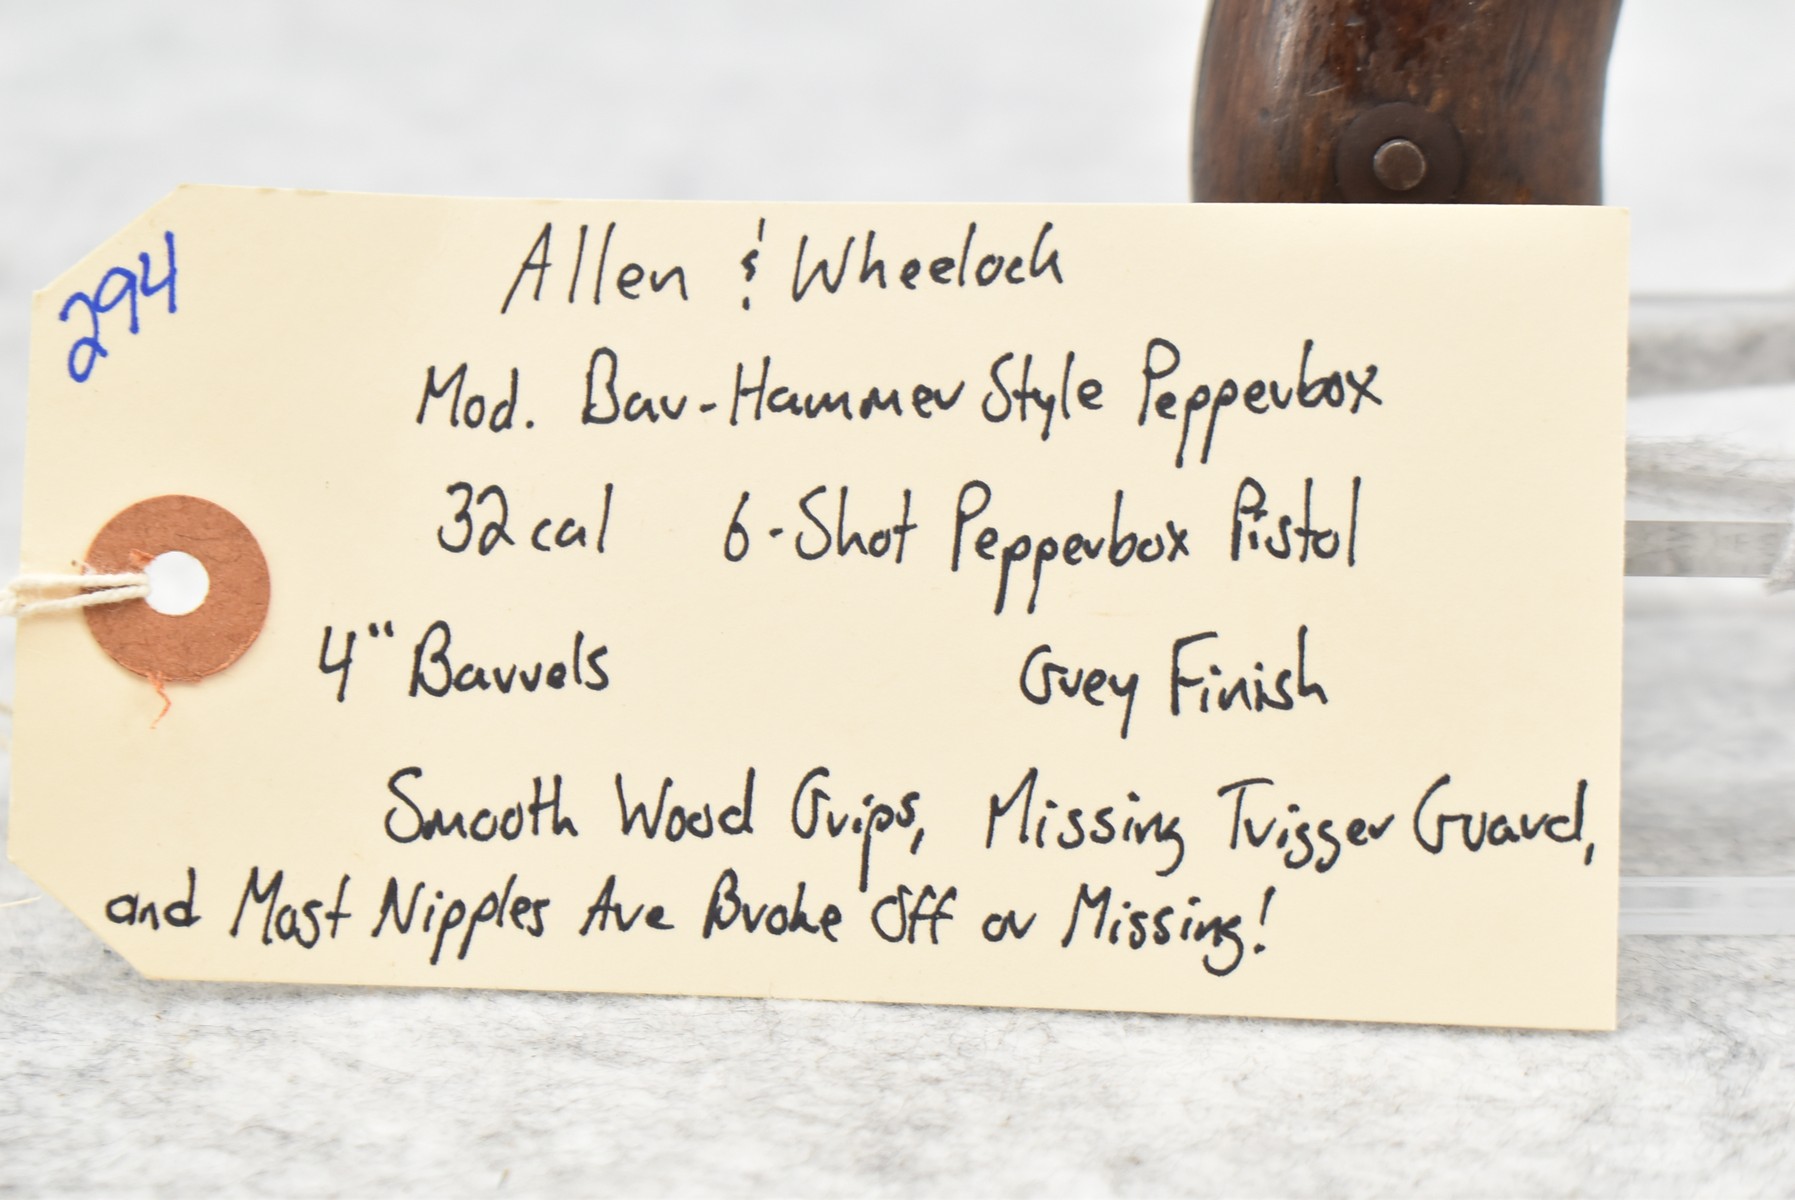 294
Allen & Wheelock
Mod. Bar-Hammer Style Pepperbox
32 cal 6-Shot Pepperbox Pistol
4" Barrels Grey Finish
Smooth Wood Grips, Missing Trigger Guard,
and Most Nipples Are Broke Off or Missing!